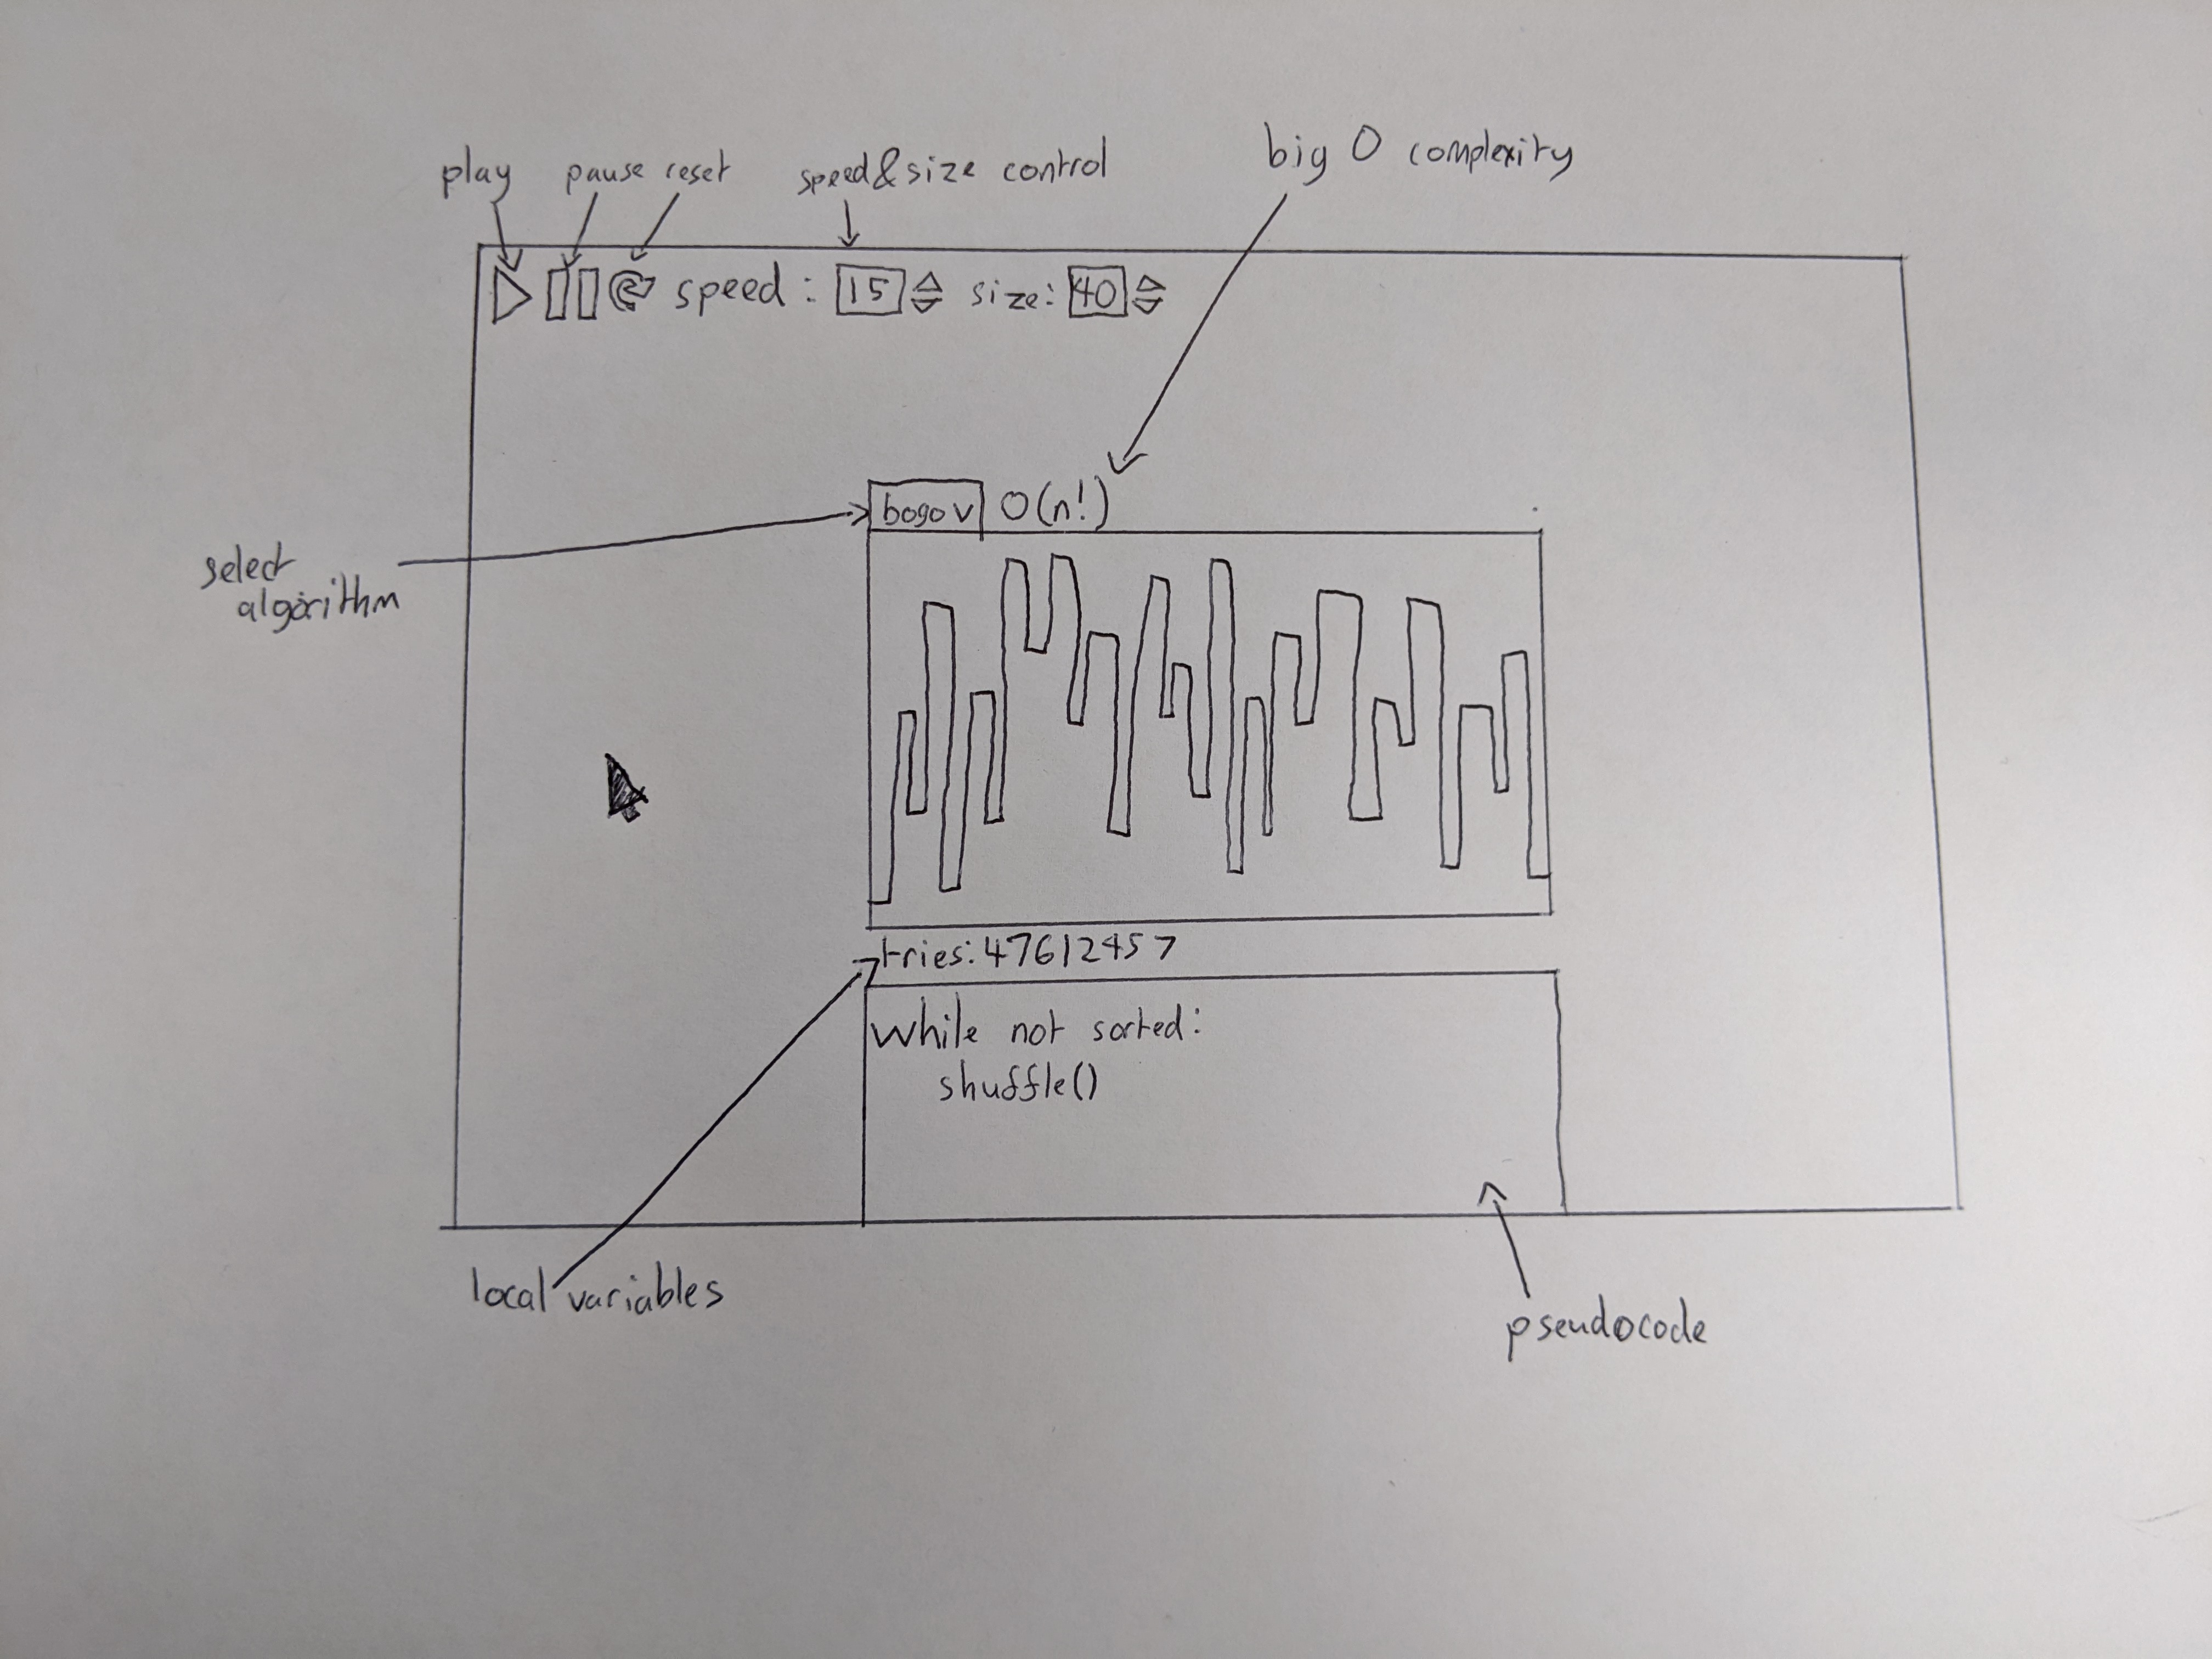 play pause reset speed&size control
big O complexity
speed: 15 size: 40
bogo v O(n!)
select
algorithm
tries: 47612457
while not sorted:
shuffle()
local variables
pseudocode